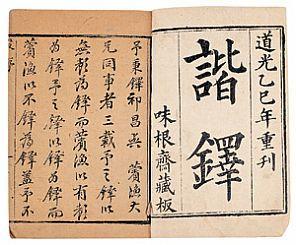 道光乙巳年重刊
諧鐸
味根齋藏板
予秉鐸祁昌與薲漁大
兄同事者三載予之鐸以
無形為鐸而薲漁以有形
為鐸予之鐸以鐸為鐸而
薲漁以不鐸為鐸蓋予不